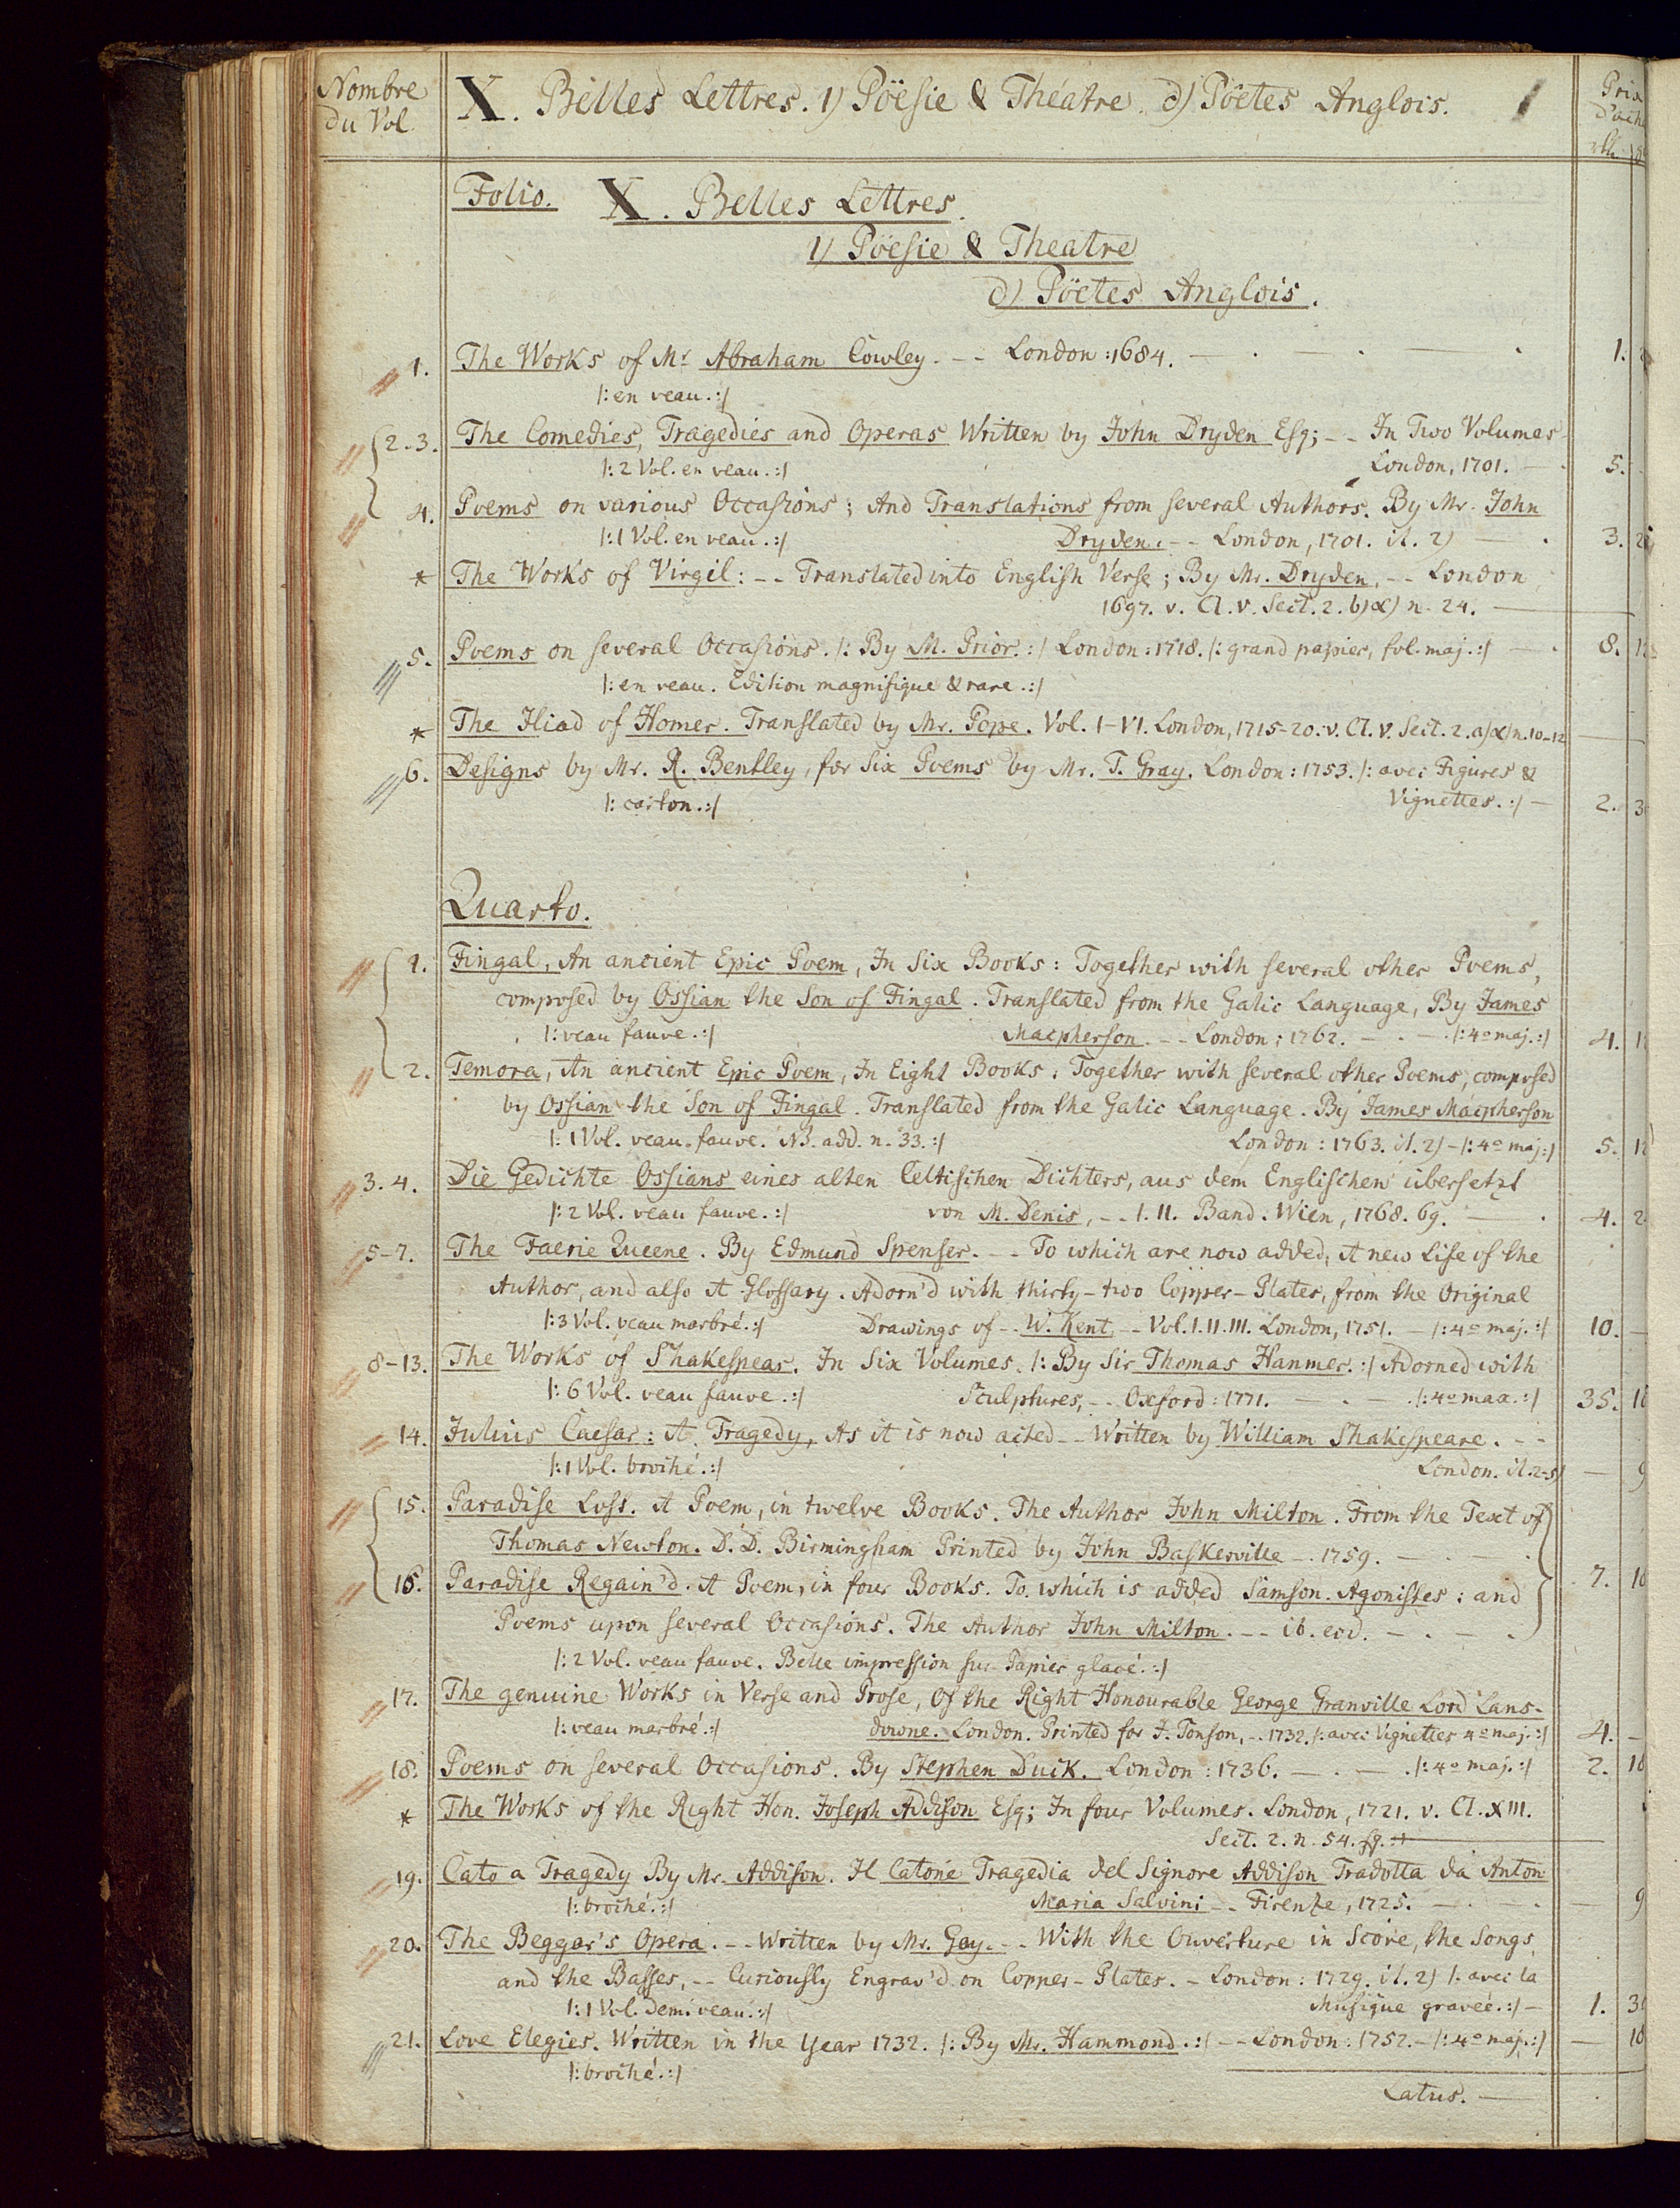 Nombre du Vol.
X. Belles Lettres. 1) Pöesie & Théatre. d) Pöetes Anglois.
Prix
Folio. X. Belles Lettres.
1) Pöesie & Theatre
d) Pöetes Anglois.
1. The Works of Mr Abraham Cowley. -- London: 1684. 1.
|: en veau. :|
2-3. The Comedies, Tragedies and Operas Written by John Dryden Esq; -- In Two Volumes
|: 2 Vol. en veau. :| London, 1701. 5.
4. Poems on various Occasions; And Translations from several Authors. By Mr. John
|: 1 Vol. en veau. :| Dryden. -- London, 1701. it. 2) 3.
* The Works of Virgil: -- Translated into English Verse; By Mr. Dryden. -- London
1697. v. Cl. V. Sect. 2. b) α) n. 24.
5. Poems on several Occasions. |: By M. Prior. :| London: 1718. |: grand papier, fol. maj. :| 8.
|: en veau. Edition magnifique & rare. :|
* The Iliad of Homer. Translated by Mr. Pope. Vol. I-VI. London, 1715-20. v. Cl. V. Sect. 2. a) α) n. 10-12
6. Designs by Mr. R. Bentley, for Six Poems by Mr. T. Gray. London: 1753. |: avec Figures &
|: carton. :| Vignettes. :| 2.
Quarto.
1. Fingal, An ancient Epic Poem, In Six Books: Together with several other Poems,
composed by Ossian the Son of Fingal. Translated from the Galic Language, By James
|: veau fauve. :| Macpherson. -- London: 1762. |: 4o maj. :| 4.
2. Temora, An ancient Epic Poem, In Eight Books: Together with several other Poems, composed
by Ossian the Son of Fingal. Translated from the Galic Language. By James Macpherson
|: 1 Vol. veau fauve. NB. add. n. 33. :| London: 1763. it. 2) - |: 4o maj. :| 5.
3. 4. Die Gedichte Ossians eines alten Celtischen Dichters, aus dem Englischen übersetzt
|: 2 Vol. veau fauve. :| von M. Denis, -- I. II. Band. Wien, 1768. 69. 4.
5-7. The Faerie Queene. By Edmund Spenser. -- To which are now added, A new Life of the
Author, and also A Glossary. Adorn'd with thirty-two Copper-Plates, from the Original
|: 3 Vol. veau marbré. :| Drawings of -- W. Kent, -- Vol. I. II. III. London, 1751. - |: 4o maj. :| 10.
8-13. The Works of Shakespear. In Six Volumes. |: By Sir Thomas Hanmer. :| Adorned with
|: 6 Vol. veau fauve. :| Sculptures, -- Oxford: 1771. |: 4o max. :| 35.
14. Julius Caesar: A Tragedy, As it is now acted -- Written by William Shakespeare. --
|: 1 Vol. broché. :| London. it. 2-5) 9
15. Paradise Lost. A Poem, in twelve Books. The Author John Milton. From the Text of
Thomas Newton. D. D. Birmingham Printed by John Baskerville -. 1759.
16. Paradise Regain'd. A Poem, in four Books. To which is added Samson Agonistes: and 7.
Poems upon several Occasions. The Author John Milton. -- ib. eod.
|: 2 Vol. veau fauve. Belle impression sur Papier glacé. :|
17. The genuine Works in Verse and Prose, Of the Right Honourable George Granville Lord Lans-
|: veau marbré. :| downe. London. Printed for J. Tonson, -. 1732. |: avec Vignettes 4o maj. :| 4.
18. Poems on several Occasions. By Stephen Duck. London: 1736. |: 4o maj. :| 2.
* The Works of the Right Hon. Joseph Addison Esq; In four Volumes. London, 1721. v. Cl. XIII.
Sect. 2. n. 54. sq.
19. Cato a Tragedy By Mr. Addison. Il Catone Tragedia del Signore Addison Tradotta da Anton
|: broché. :| Maria Salvini -- Firenze, 1725. 9
20. The Beggar's Opera. -- Written by Mr. Gay. -- With the Ouverture in Score, the Songs,
and the Basses, -- Curiously Engrav'd on Copper-Plates. - London: 1729. it. 2) |: avec la
|: 1 Vol. demi veau. :| Musique gravée. :| 1.
21. Love Elegies. Written in the Year 1732. |: By Mr. Hammond. :| -- London: 1752. - |: 4o maj. :|
|: broché. :|
Latus.